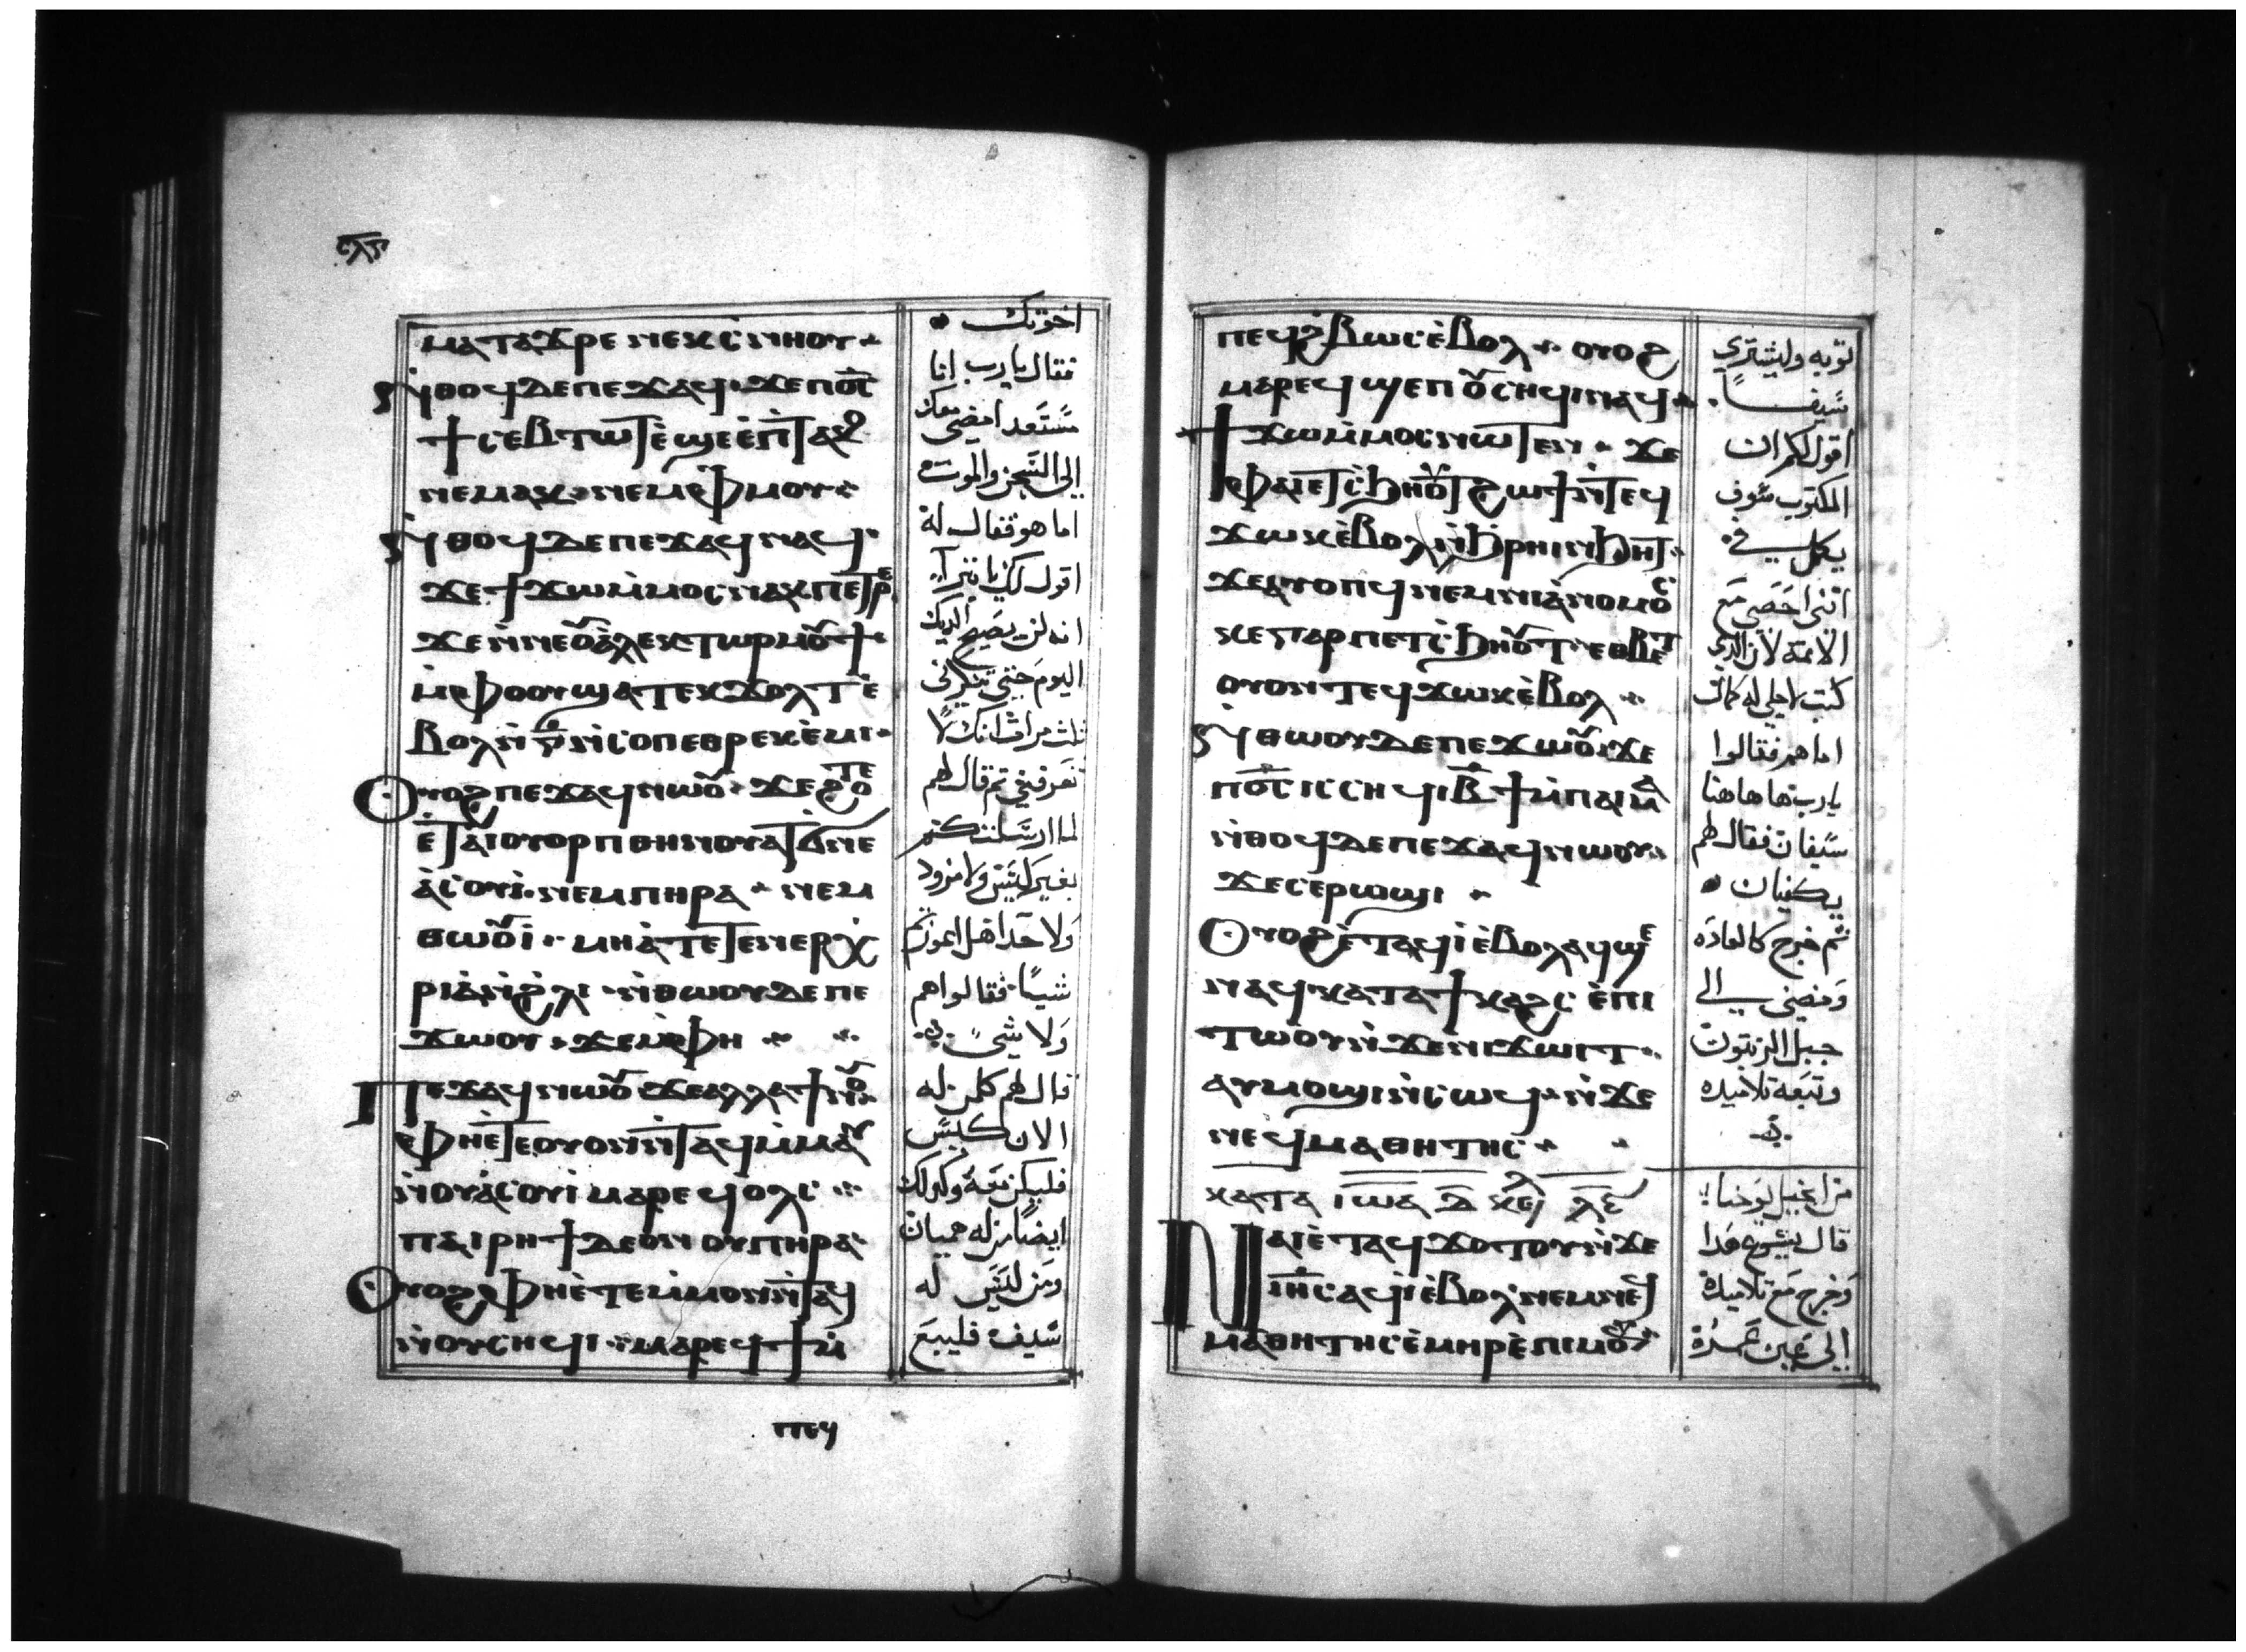 ⲙⲁⲧⲁϫⲣⲉ ⲛⲉⲕⲥⲛⲏⲟⲩ
ⲛ̀ⲑⲟϥ ⲇⲉ ⲡⲉϫⲁϥ ϫⲉ ⲡⲟ̅ⲥ̅
ϯⲥⲉⲃⲧⲱⲧ ⲉ̀ϣⲉ ⲉ̀ⲡϣⲧⲉⲕⲟ
ⲛⲉⲙⲁⲕ ⲛⲉⲙ ⲫⲙⲟⲩ
ⲛ̀ⲑⲟϥ ⲇⲉ ⲡⲉϫⲁϥ ⲛⲁϥ
ϫⲉ ϯϫⲱ ⲙ̀ⲙⲟⲥ ⲛⲁⲕ ⲡⲉⲧⲣⲉ
ϫⲉ ⲛ̀ⲛⲉⲟⲩⲁ̀ⲗⲉⲕⲧⲱⲣ ⲙⲟⲩϯ
ⲙ̀ⲫⲟⲟⲩ ϣⲁⲧⲉⲕϫⲟⲗⲧ ⲉ̀
ⲃⲟⲗ ⲛ̀ⲅ̅ ⲛ̀ⲥⲟⲡ ⲉⲑⲣⲉⲕⲉ̀ⲙⲓ
ⲟⲩⲟϩ ⲡⲉϫⲁϥ ⲛⲱⲟⲩ ϫⲉ ϩⲟⲧⲉ
ⲉ̀ⲧⲁⲓⲟⲩⲟⲣⲡ ⲑⲏⲛⲟⲩ ⲁⲧϭⲛⲉ
ⲁ̀ⲥⲟⲩⲓ̀ ⲛⲉⲙ ⲡⲏⲣⲁ ⲛⲉⲙ
ⲑⲱⲟⲩⲓ̀ ⲙⲏ ⲁ̀ⲧⲉⲧⲉⲛⲉⲣⲭ̀
ⲣⲓⲁ ⲛ̀ϩ̀ⲗⲓ ⲛ̀ⲑⲱⲟⲩ ⲇⲉ ⲡⲉ
ϫⲱⲟⲩ ϫⲉ ⲙ̀ⲫⲏ
ⲡⲉϫⲁϥ ⲛⲱⲟⲩ ϫⲉ ⲁⲗⲗⲁ ϯⲛⲟⲩ
ⲫⲏ ⲉ̀ⲧⲉ ⲟⲩⲟⲛ ⲛ̀ⲧⲁϥ ⲙ̀ⲙⲁⲩ
ⲛ̀ⲟⲩⲁ̀ⲥⲟⲩⲓ̀ ⲙⲁⲣⲉϥⲟⲗⲥ
ⲡⲁⲓⲣⲏϯ ⲇⲉ ⲟⲛ ⲟⲩⲡⲏⲣⲁ
ⲟⲩⲟϩ ⲫⲏ ⲉ̀ⲧⲉ ⲙ̀ⲙⲟⲛ ⲛ̀ⲧⲁϥ
ⲛ̀ⲟⲩⲥⲏϥⲓ ⲙⲁⲣⲉϥϯ ⲙ̀
ⲡⲉϥ
اخوتك
فقال يارب انا
مستعد امضى معك
الى السجن والموت
اما هو فقال له
اقول لك يا بترا
انه لن يصيح الديك
اليوم حتى تنكرنى
ثلث مرات انك لا
تعرفنى ثم قال لهم
لما ارسلتكم
بغير كيس ولا مزود
ولا حدا هل اعوزكم
شيئا فقالوا هم
ولا شى
قال لهم كلمن له
الان كيس
فليكن معه وكدلك
ايضا من له هميان
ومن ليس له
سيف فليبع
ⲡⲉϥϩ̀ⲃⲱⲥ ⲉ̀ⲃⲟⲗ ⲟⲩⲟϩ
ⲙⲁⲣⲉϥϣⲉⲡ ⲟⲩⲥⲏϥⲓ ⲛⲁϥ
ϯϫⲱ ⲙ̀ⲙⲟⲥ ⲛⲱⲧⲉⲛ ϫⲉ
ⲫⲁⲓ ⲉⲧⲥ̀ϧⲏⲟⲩⲧ ϩⲱϯ ⲛ̀ⲧⲉϥ
ϫⲱⲕ ⲉ̀ⲃⲟⲗ ⲛ̀ϧ̀ⲣⲏⲓ ⲛ̀ϧⲏⲧ
ϫⲉ ⲁⲩⲟⲡϥ ⲛⲉⲙ ⲛⲓⲁ̀ⲛⲟⲙⲟⲥ
ⲕⲉ ⲅⲁⲣ ⲡⲉⲧⲥ̀ϧⲏⲟⲩⲧ ⲉⲑⲃⲏⲧ
ⲟⲩⲟⲛⲧⲉϥ ϫⲱⲕ ⲉ̀ⲃⲟⲗ
ⲛ̀ⲑⲱⲟⲩ ⲇⲉ ⲡⲉϫⲱⲟⲩ ϫⲉ
ⲡⲟ̅ⲥ̅ ⲓⲥ ⲥⲏϥⲓ ⲃ̅ϯ ⲙ̀ⲡⲁⲓⲙⲁ
ⲛ̀ⲑⲟϥ ⲇⲉ ⲡⲉϫⲁϥ ⲛⲱⲟⲩ
ϫⲉ ⲥⲉⲣⲱϣⲓ
ⲟⲩⲟϩ ⲉ̀ⲧⲁϥⲓ̀ ⲉ̀ⲃⲟⲗ ⲁϥϣⲉ
ⲛⲁϥ ⲕⲁⲧⲁ ϯⲕⲁϩⲥ ⲉ̀ⲡⲓ
ⲧⲱⲟⲩ ⲛ̀ϫⲉ ⲛⲓϫⲱⲓⲧ
ⲁⲩⲙⲟϣⲓ ⲛ̀ⲥⲱϥ ⲛ̀ϫⲉ
ⲛⲉϥⲙⲁⲑⲏⲧⲏⲥ
ⲕⲁⲧⲁ ⲓⲱⲁ
ⲛⲁⲓ ⲉ̀ⲧⲁϥϫⲟⲧⲟⲩ ⲛ̀ϫⲉ
ⲓⲏ̅ⲥ̅ ⲁϥⲓ̀ ⲉ̀ⲃⲟⲗ ⲛⲉⲙ ⲛⲉϥ
ⲙⲁⲑⲏⲧⲏⲥ ⲉ̀ⲙⲏⲣ ⲉ̀ⲡⲓⲙⲟⲩ
توبه وليشترى
سيفا
اقول لكم ان
المكتوب سوف
يكمل فى
اننى احصى مع
الائمة لان الدى
كتب لاجلى له كمال
اما هم فقالوا
يارب ها هاهنا
سيفان فقال لهم
يكفيان
ثم خرج كالعاده
ومضى الى
جبل الزيتون
وتبعه تلاميده
من انجيل يوحنا
قال يسوع هدا
وخرج مع تلاميده
الى عبر